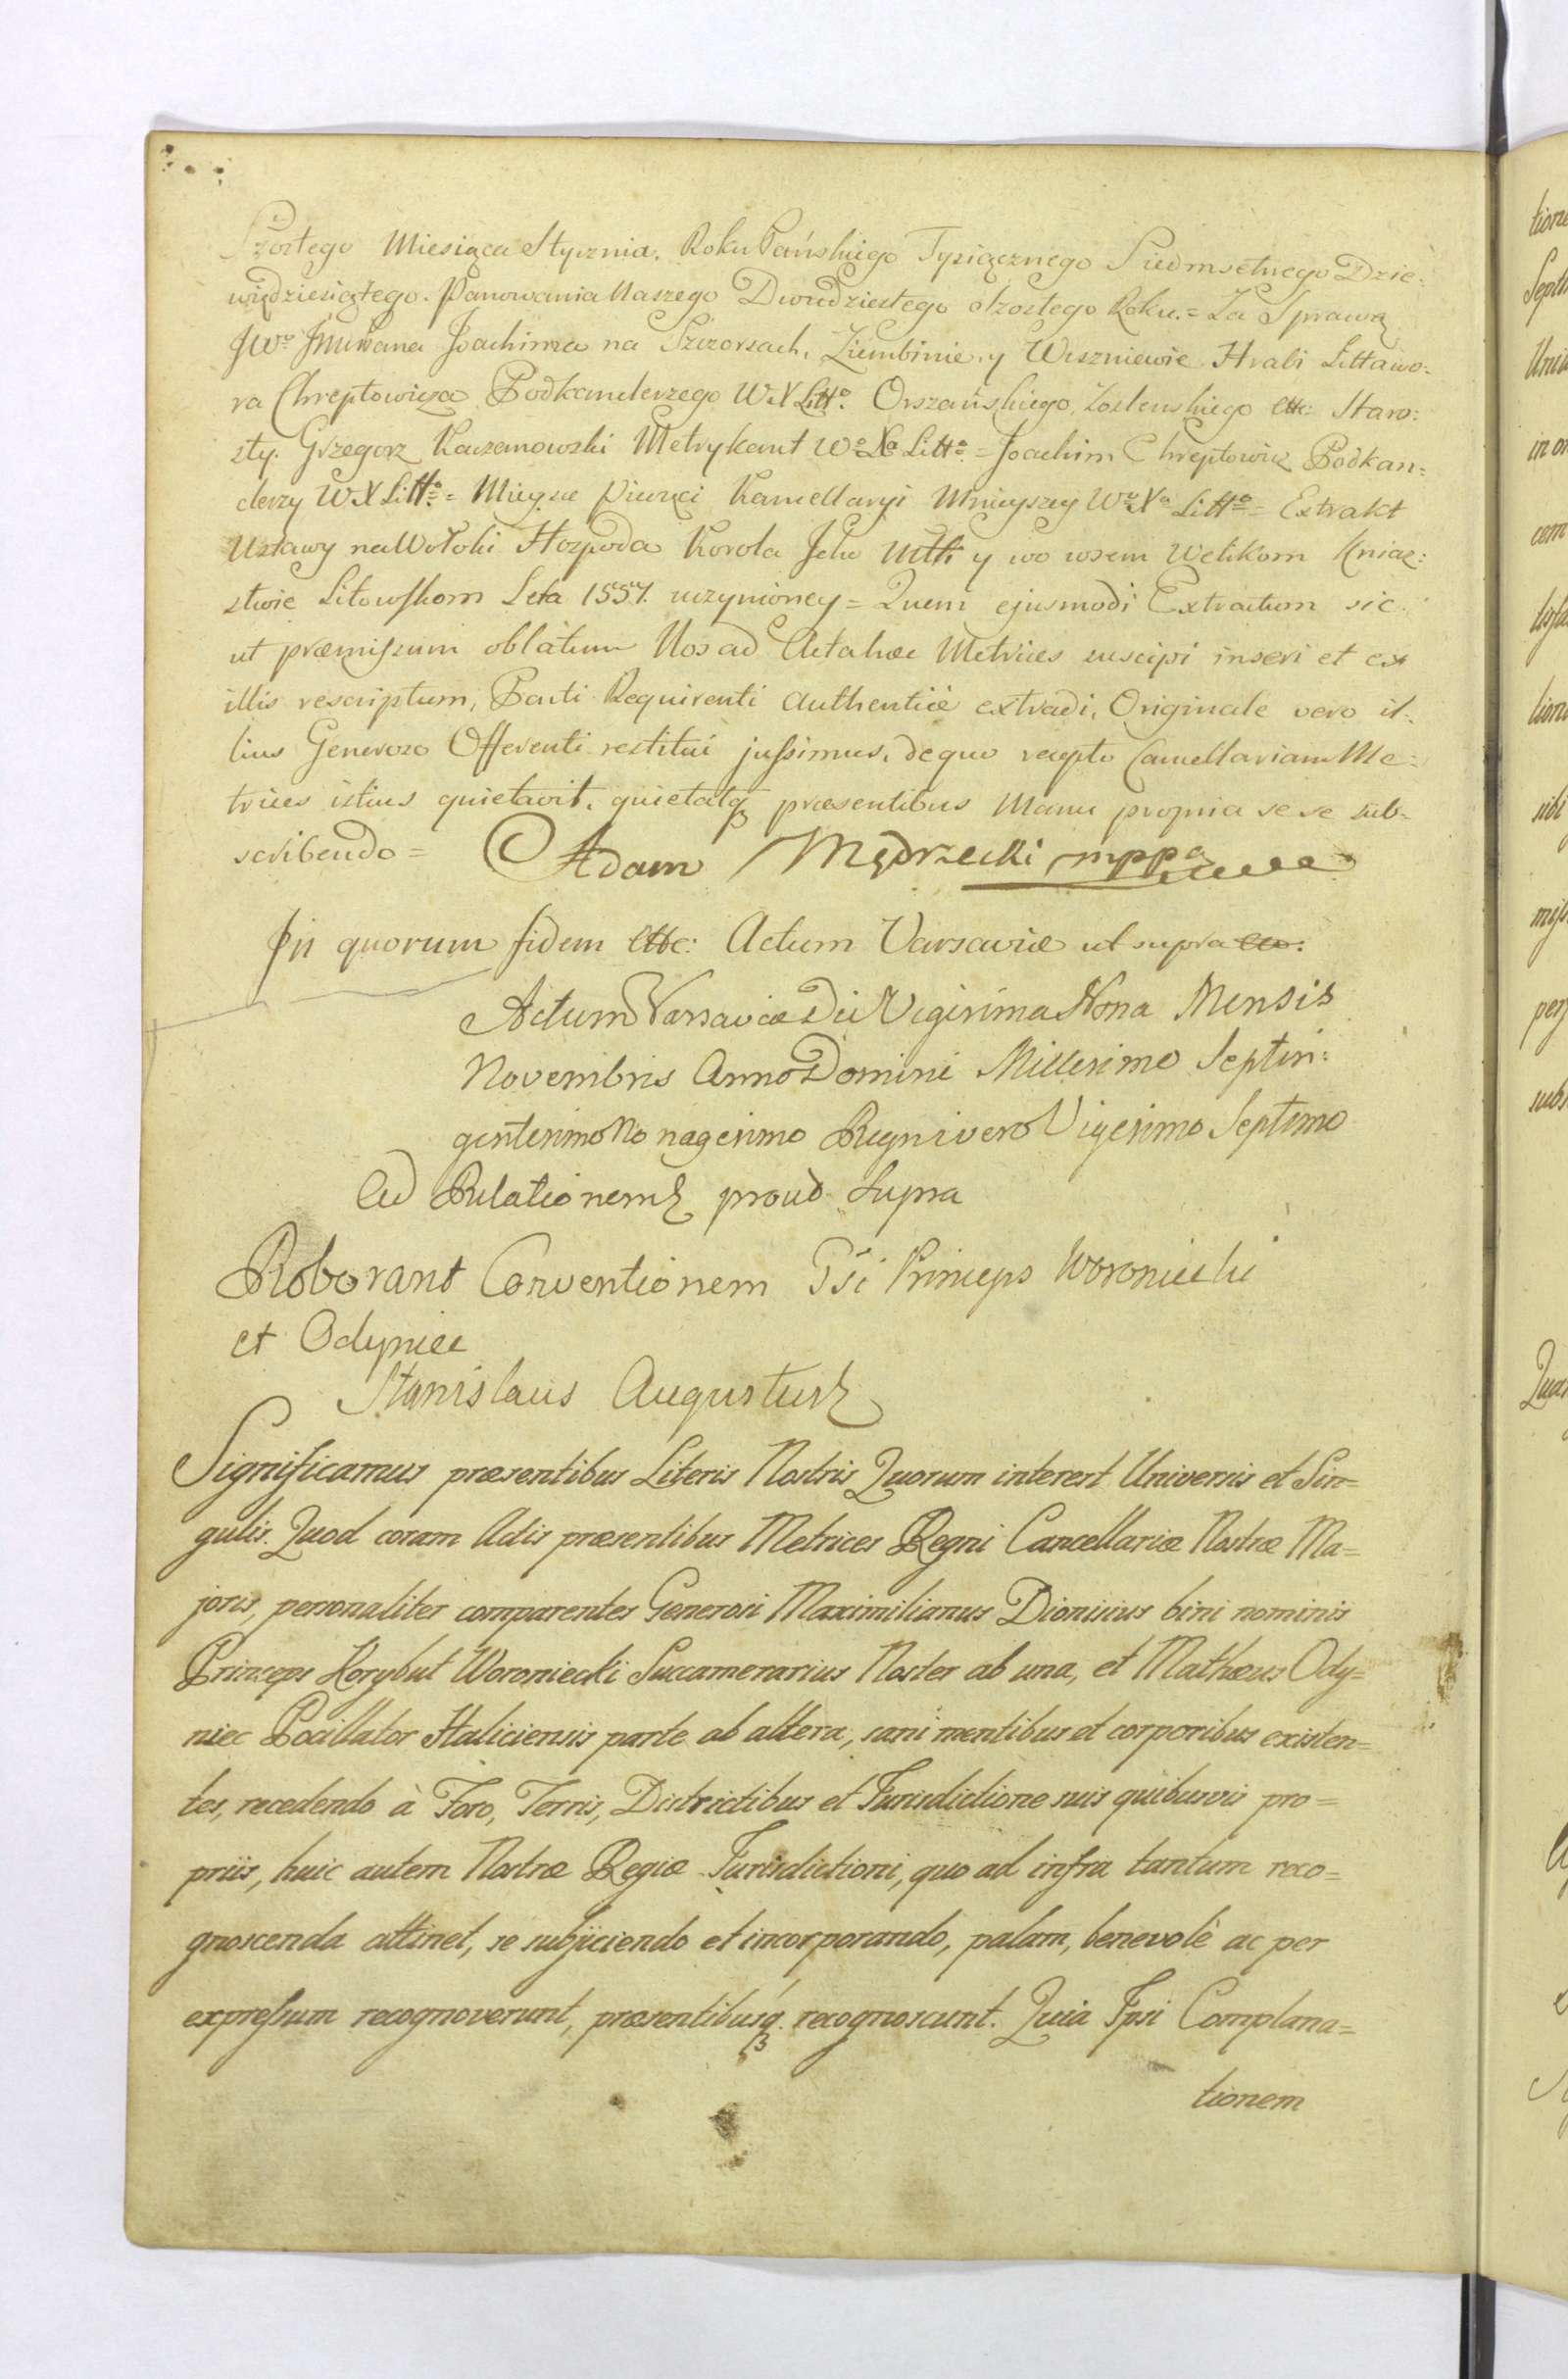 Szóstego Miesiąca Stycznia. Roku Pańskiego Tysiącznego Siedmsetnego Dzie:
więdziesiątego. Panowania Naszego Dwudziestego szóstego Roku. = Za Sprawą
JWo Jmci Pana Joachima na Szczorsach, Ziembinie, y Wiszniewie Hrabi Littawo:
ra Chreptowicza Podkanclerzego W X Litto. Orszańskiego, etc: Staro:
sty. Grzegorz Kaczanowski Metrykant Wo Xa Litto = Joachim Chreptowicz Podkan:
clerzy W X Litto = Mieysce Pieczęci Kancellaryi Mnieyszey Wo Xa Litto = Extrakt
Ustawy na Wołoki Hospoda Korola Jeho Mtti y wo wsem Welikom Kniaz:
stwie Litowskom Leta 1557. uczynioney = Quem ejusmodi Extractum sic
ut præmissum oblatum Nos ad Acta hæc Metrices suscipi inseri et ex
illis rescriptum, Parti Requirenti authenticè extradi, Originale vero il:
lius Generoso Offerenti restitui jussimus, de quo recepto Cancellariam Me:
trices istius quietavit, quietatq præsentibus Manu propria se se sub:
scribendo = Adam Mędrzecki mppa
In quorum fidem etc: Actum Varsaviæ ut supra
Actum Varsaviæ Die Vigesima Nona Mensis
Novembris Anno Domini Millesimo Septin:
gentesimo Nonagesimo Regni vero Vigesimo Septimo
Ad Relationem proud supra
Roborant Conventionem Gsi Princeps Woroniecki
et Odyniec
Stanislaus Augustus
Significamus præsentibus Literis Nostris Quorum interest Universis et Sin=
gulis. Quod coram Actis præsentibus Metrices Regni Cancellariæ Nostræ Ma=
joris, personaliter comparentes Generosi Maximilianus Dionisius bini nominis
Princeps Korybut Woroniecki Succamerarius Noster ab una, et Mathæus Ody=
niec Pocillator Haliciensis parte ab altera, sani mentibus et corporibus existen=
tes, recedendo à Foro, Terris, Districtibus et Jurisdictione suis quibusvis pro=
priis, huic autem Nostræ Regiæ Jurisdictioni, quo ad infra tantum reco=
gnoscenda attinet, se subjiciendo et incorporando, palam, benevolè ac per
expressum recognoverunt, præsentibusq. recognoscunt. Quia Ipsi Complana=
tionem